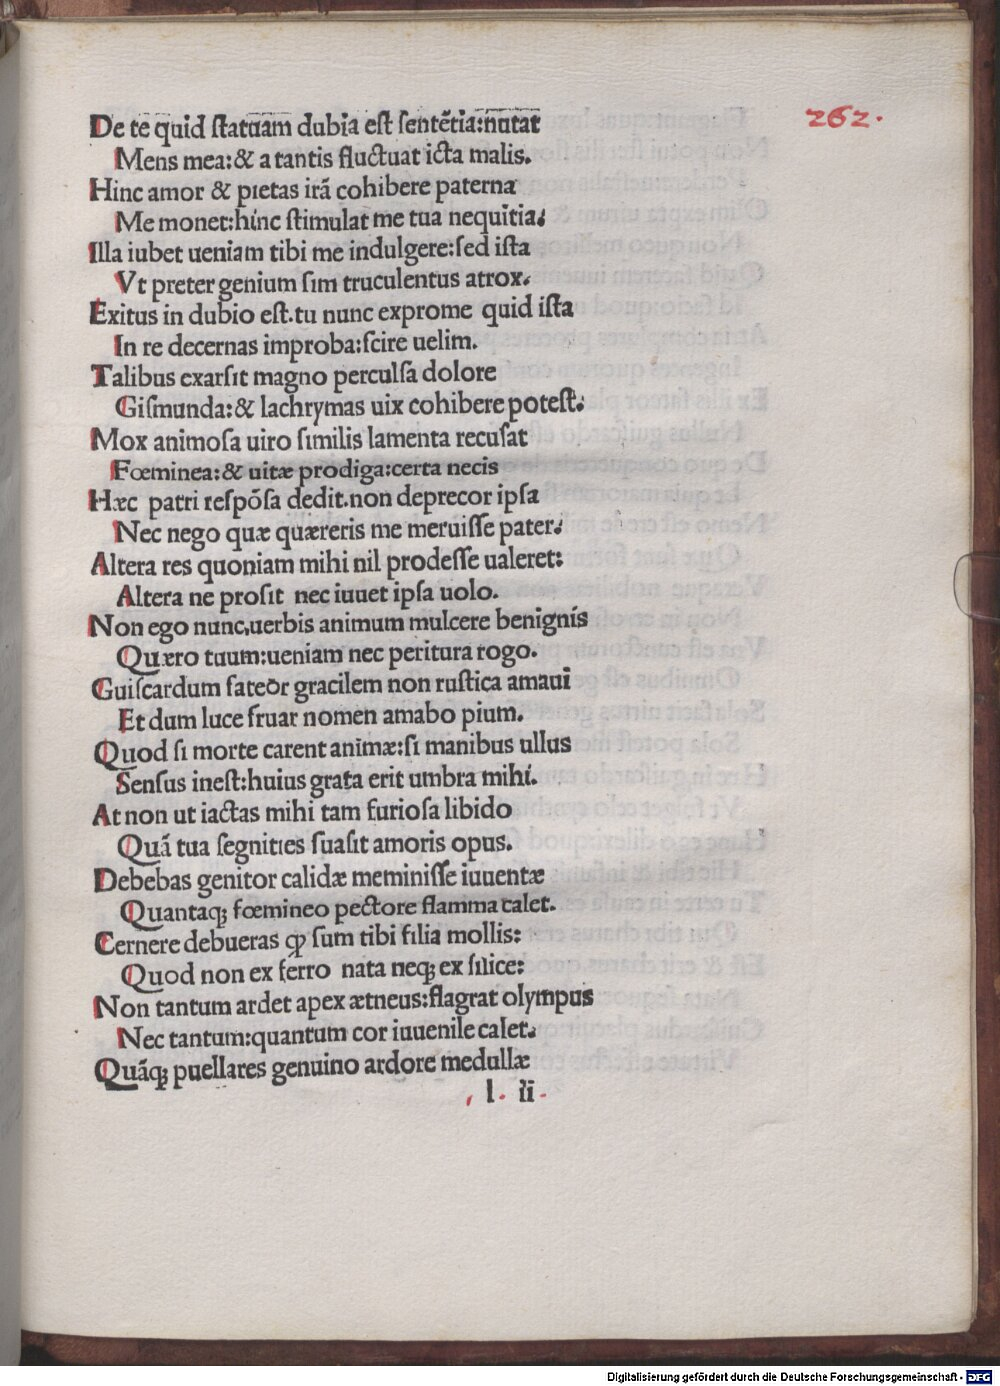 262.
De te quid ſtatuam dubia eſt ſentẽtia:nutat
Mens mea:& a tantis fluctuat icta malis.
Hinc amor & pietas irã cohibere paterna
Me monet:hinc ſtimulat me tua nequitia:
Illa iubet ueniam tibi me indulgere:ſed iſta
Vt preter genium ſim truculentus atrox.
Exitus in dubio eſt.tu nunc exprome quid iſta
In re decernas improba:ſcire uelim.
Talibus exarſit magno perculſa dolore
Giſmunda:& lachrymas uix cohibere poteſt:
Mox animoſa uiro ſimilis lamenta recuſat
Fœminea:& uitæ prodiga:certa necis
Hæc patri reſpõſa dedit.non deprecor ipſa
Nec nego quæ quæreris me meruiſſe pater:
Altera res quoniam mihi nil prodeſſe ualeret:
Altera ne proſit nec iuuet ipſa uolo.
Non ego nunc,uerbis animum mulcere benignis
Quæro tuum:ueniam nec peritura rogo.
Guiſcardum fateor gracilem non ruſtica amaui
Et dum luce fruar nomen amabo pium.
Quod ſi morte carent animæ:ſi manibus ullus
Senſus ineſt:huius grata erit umbra mihi.
At non ut iactas mihi tam furioſa libido
Quã tua ſegnities ſuaſit amoris opus.
Debebas genitor calidæ meminiſſe iuuentæ
Quantaqꝫ fœmineo pectore flamma calet.
Cernere debueras ꝙ ſum tibi filia mollis:
Quod non ex ferro nata neqꝫ ex ſilice:
Non tantum ardet apex ætneus:flagrat olympus
Nec tantum:quantum cor iuuenile calet:
Quãqꝫ puellares genuino ardore medullæ
l. ii
Digitalisierung gefördert durch die Deutsche Forschungsgemeinschaft - DFG